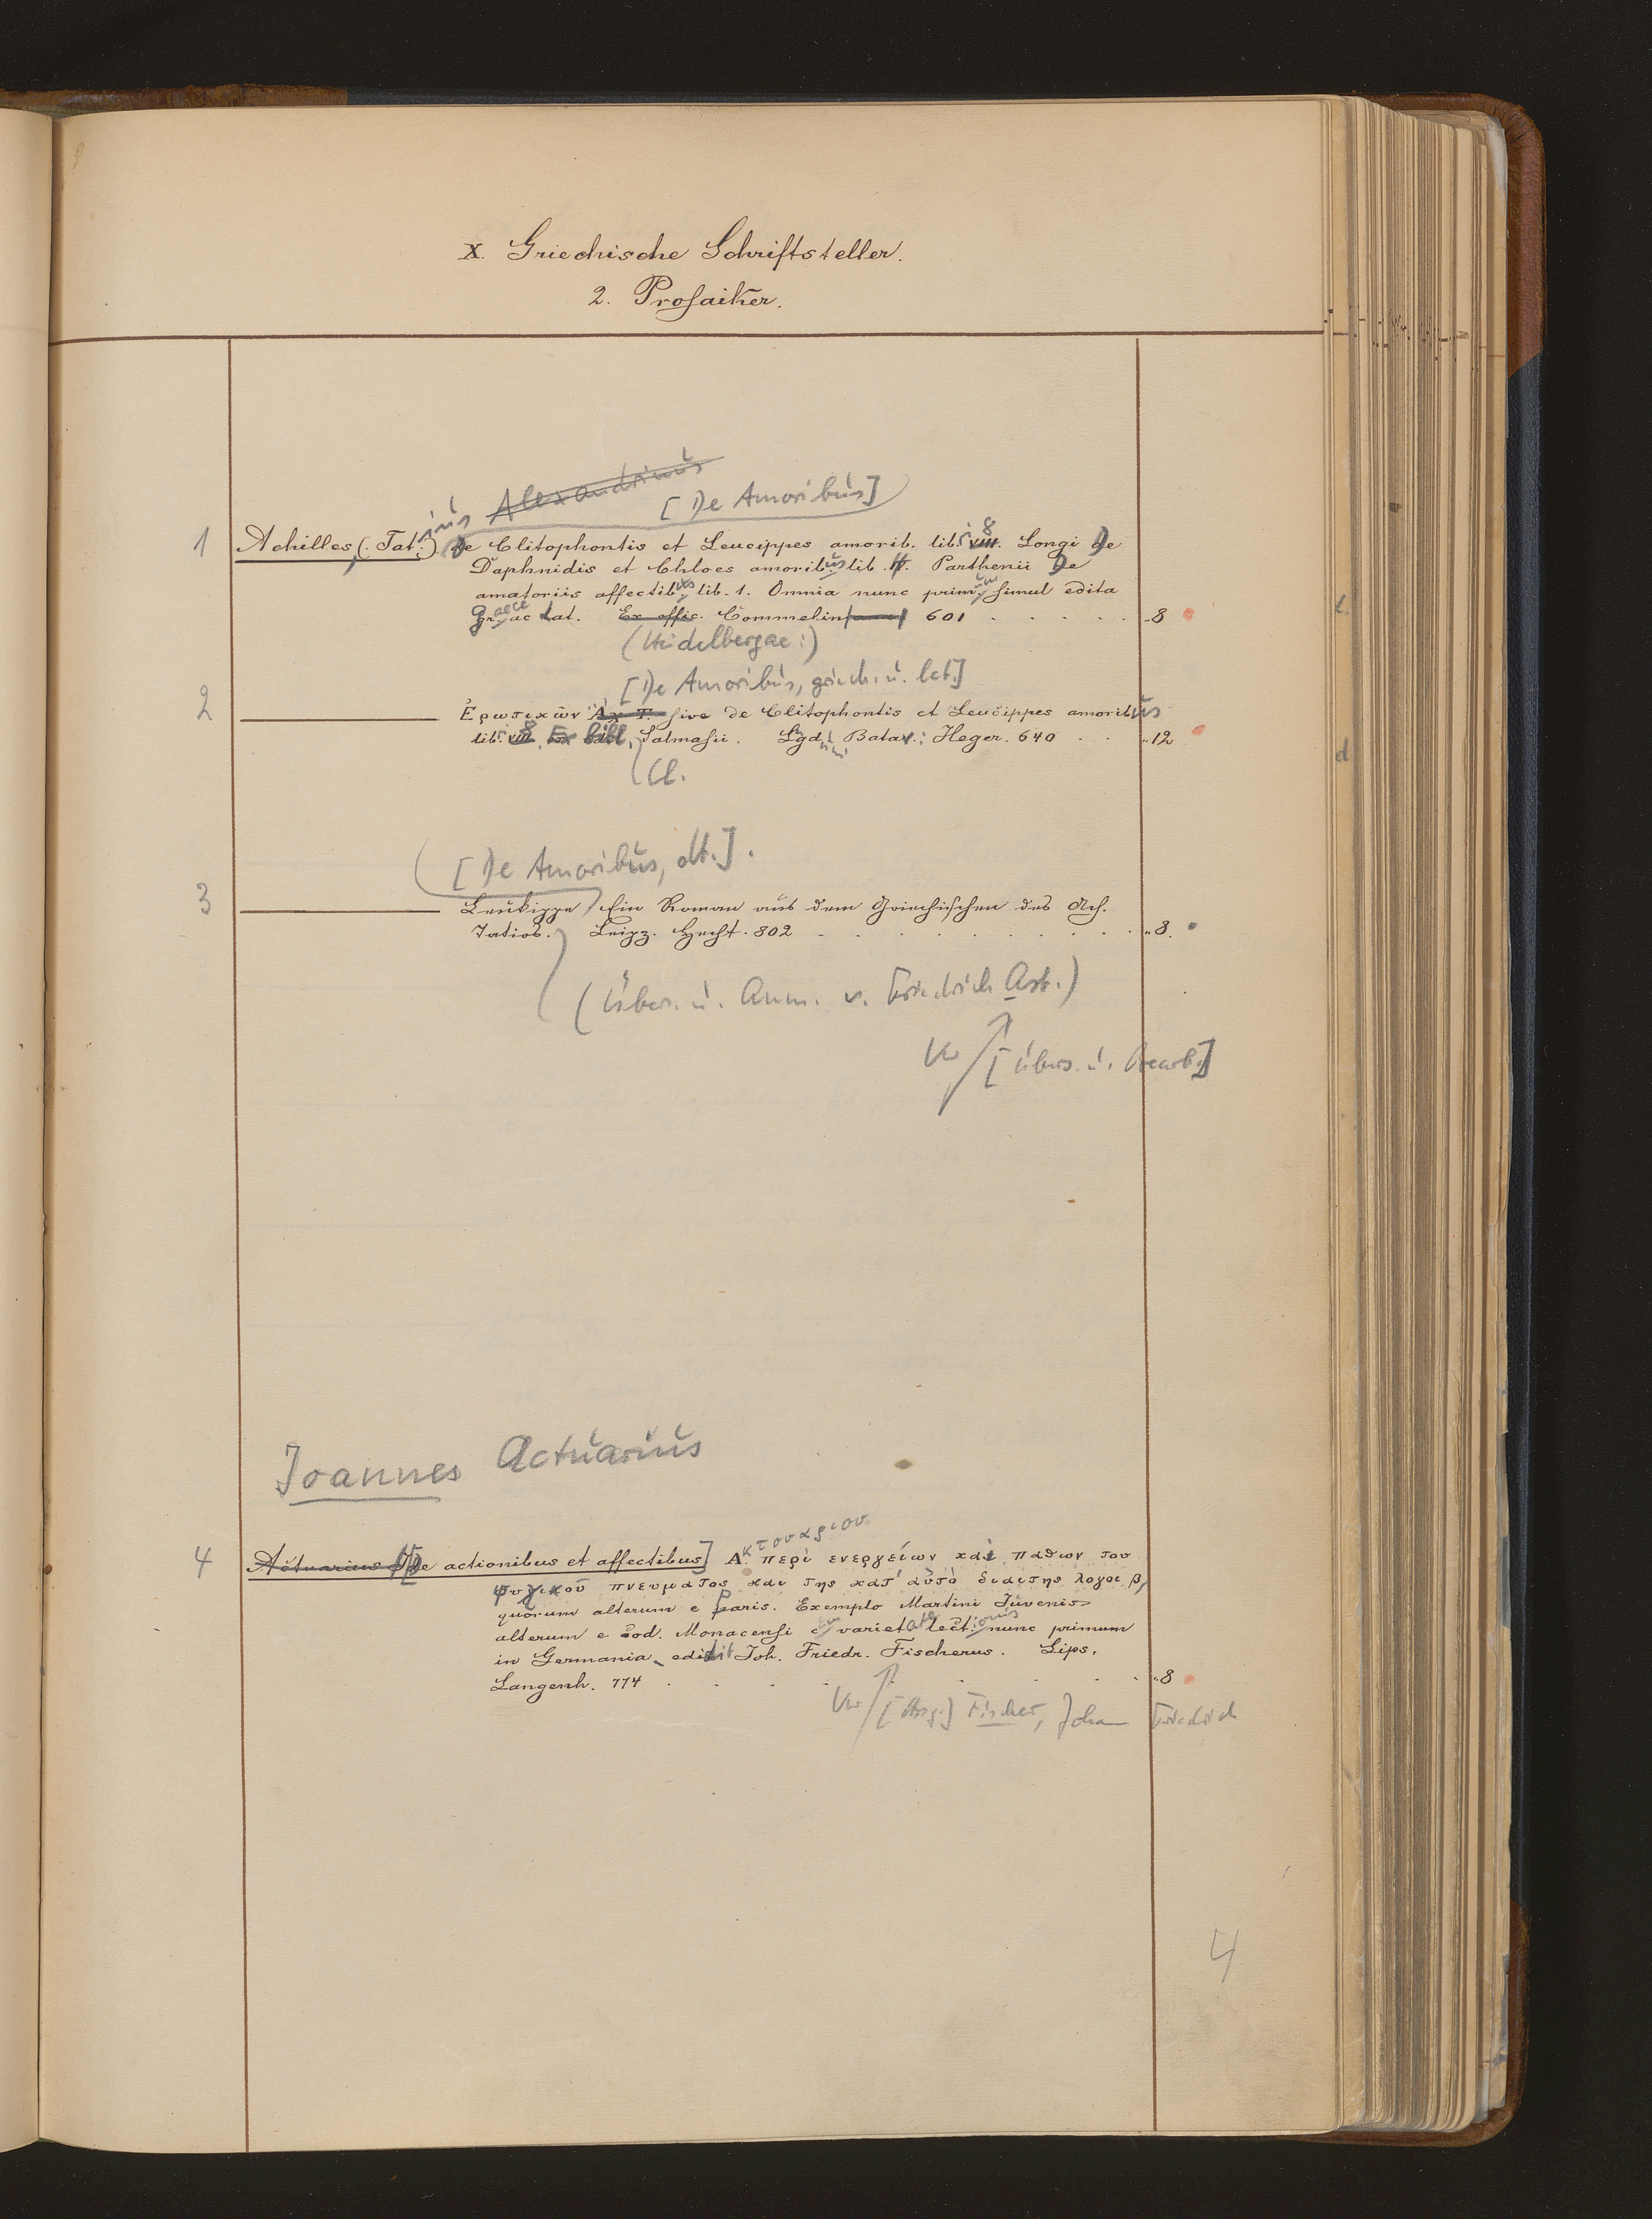 X. Griechische Schriftsteller.
2. Prosaiker.
Alexandrinus
[De Amoribus]
1 Achilles, (Tatius) De Clitophontis et Leucippes amorib. lib. VIII. 8 Longi De
Daphnidis et Chloes amoribus lib. 4. Parthenii De
amatoriis affectibus lib. 1. Omnia nunc primum simul edita
Graece ac Lat. Ex offic. Commelin 601 . . . . . . 8
(Heidelbergae:)
[De Amoribus, griech. u. lat.]
2 Ἐρωτικῶν Ἀχ. Τ. sive de Clitophontis et Leucippes amoribus
lib. VIII. 8 Ex bibl. Salmasii. Lugd. Batav.: Heger. 640 . . „12
Cl.
[De Amoribus, dt.].
3 Leukippe Ein Roman aus dem Griechischen des Ach.
Tatios. Leipz. Hecht. 802 . . . . . . . „8.
(Übers. u. Anm. v. Friedrich Ast.)
Vw [Übers. u. Bearb.]
Joannes Actuarius
κτουαριου
4 Actuarius [De actionibus et affectibus] Α. περὶ ενεργείων καὶ παθων του
ψυχικοῦ πνευματος και της κατ' αὐτὸ διαιτης λογοι β,
quorum alterum e Paris. Exemplo Martini Juvenis
alterum e cod. Monacensi cum varietate lectionis nunc primum
in Germania edidit Joh. Friedr. Fischerus. Lips.
Langenh. 774 . . . . . . „8
Vw [Hrsg.] Fischer, Johann Friedrich
4